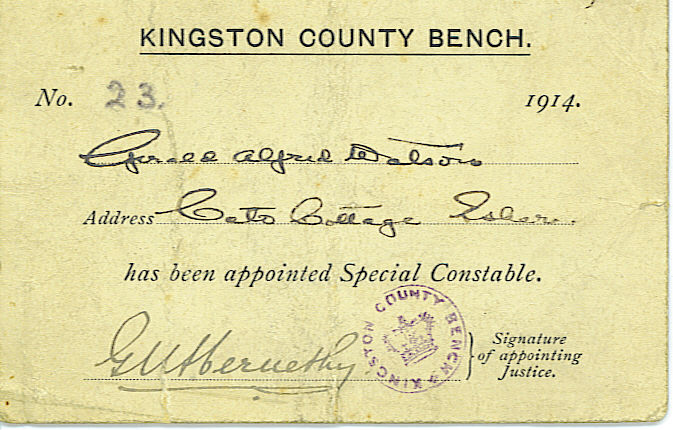 KINGSTON COUNTY BENCH.
No. 23. 1914.
Gerald Alfred Watson
Address Cato Cottage Esher.
has been appointed Special Constable.
G U Abernethy
KINGSTON COUNTY BENCH
Signature
of appointing
Justice.